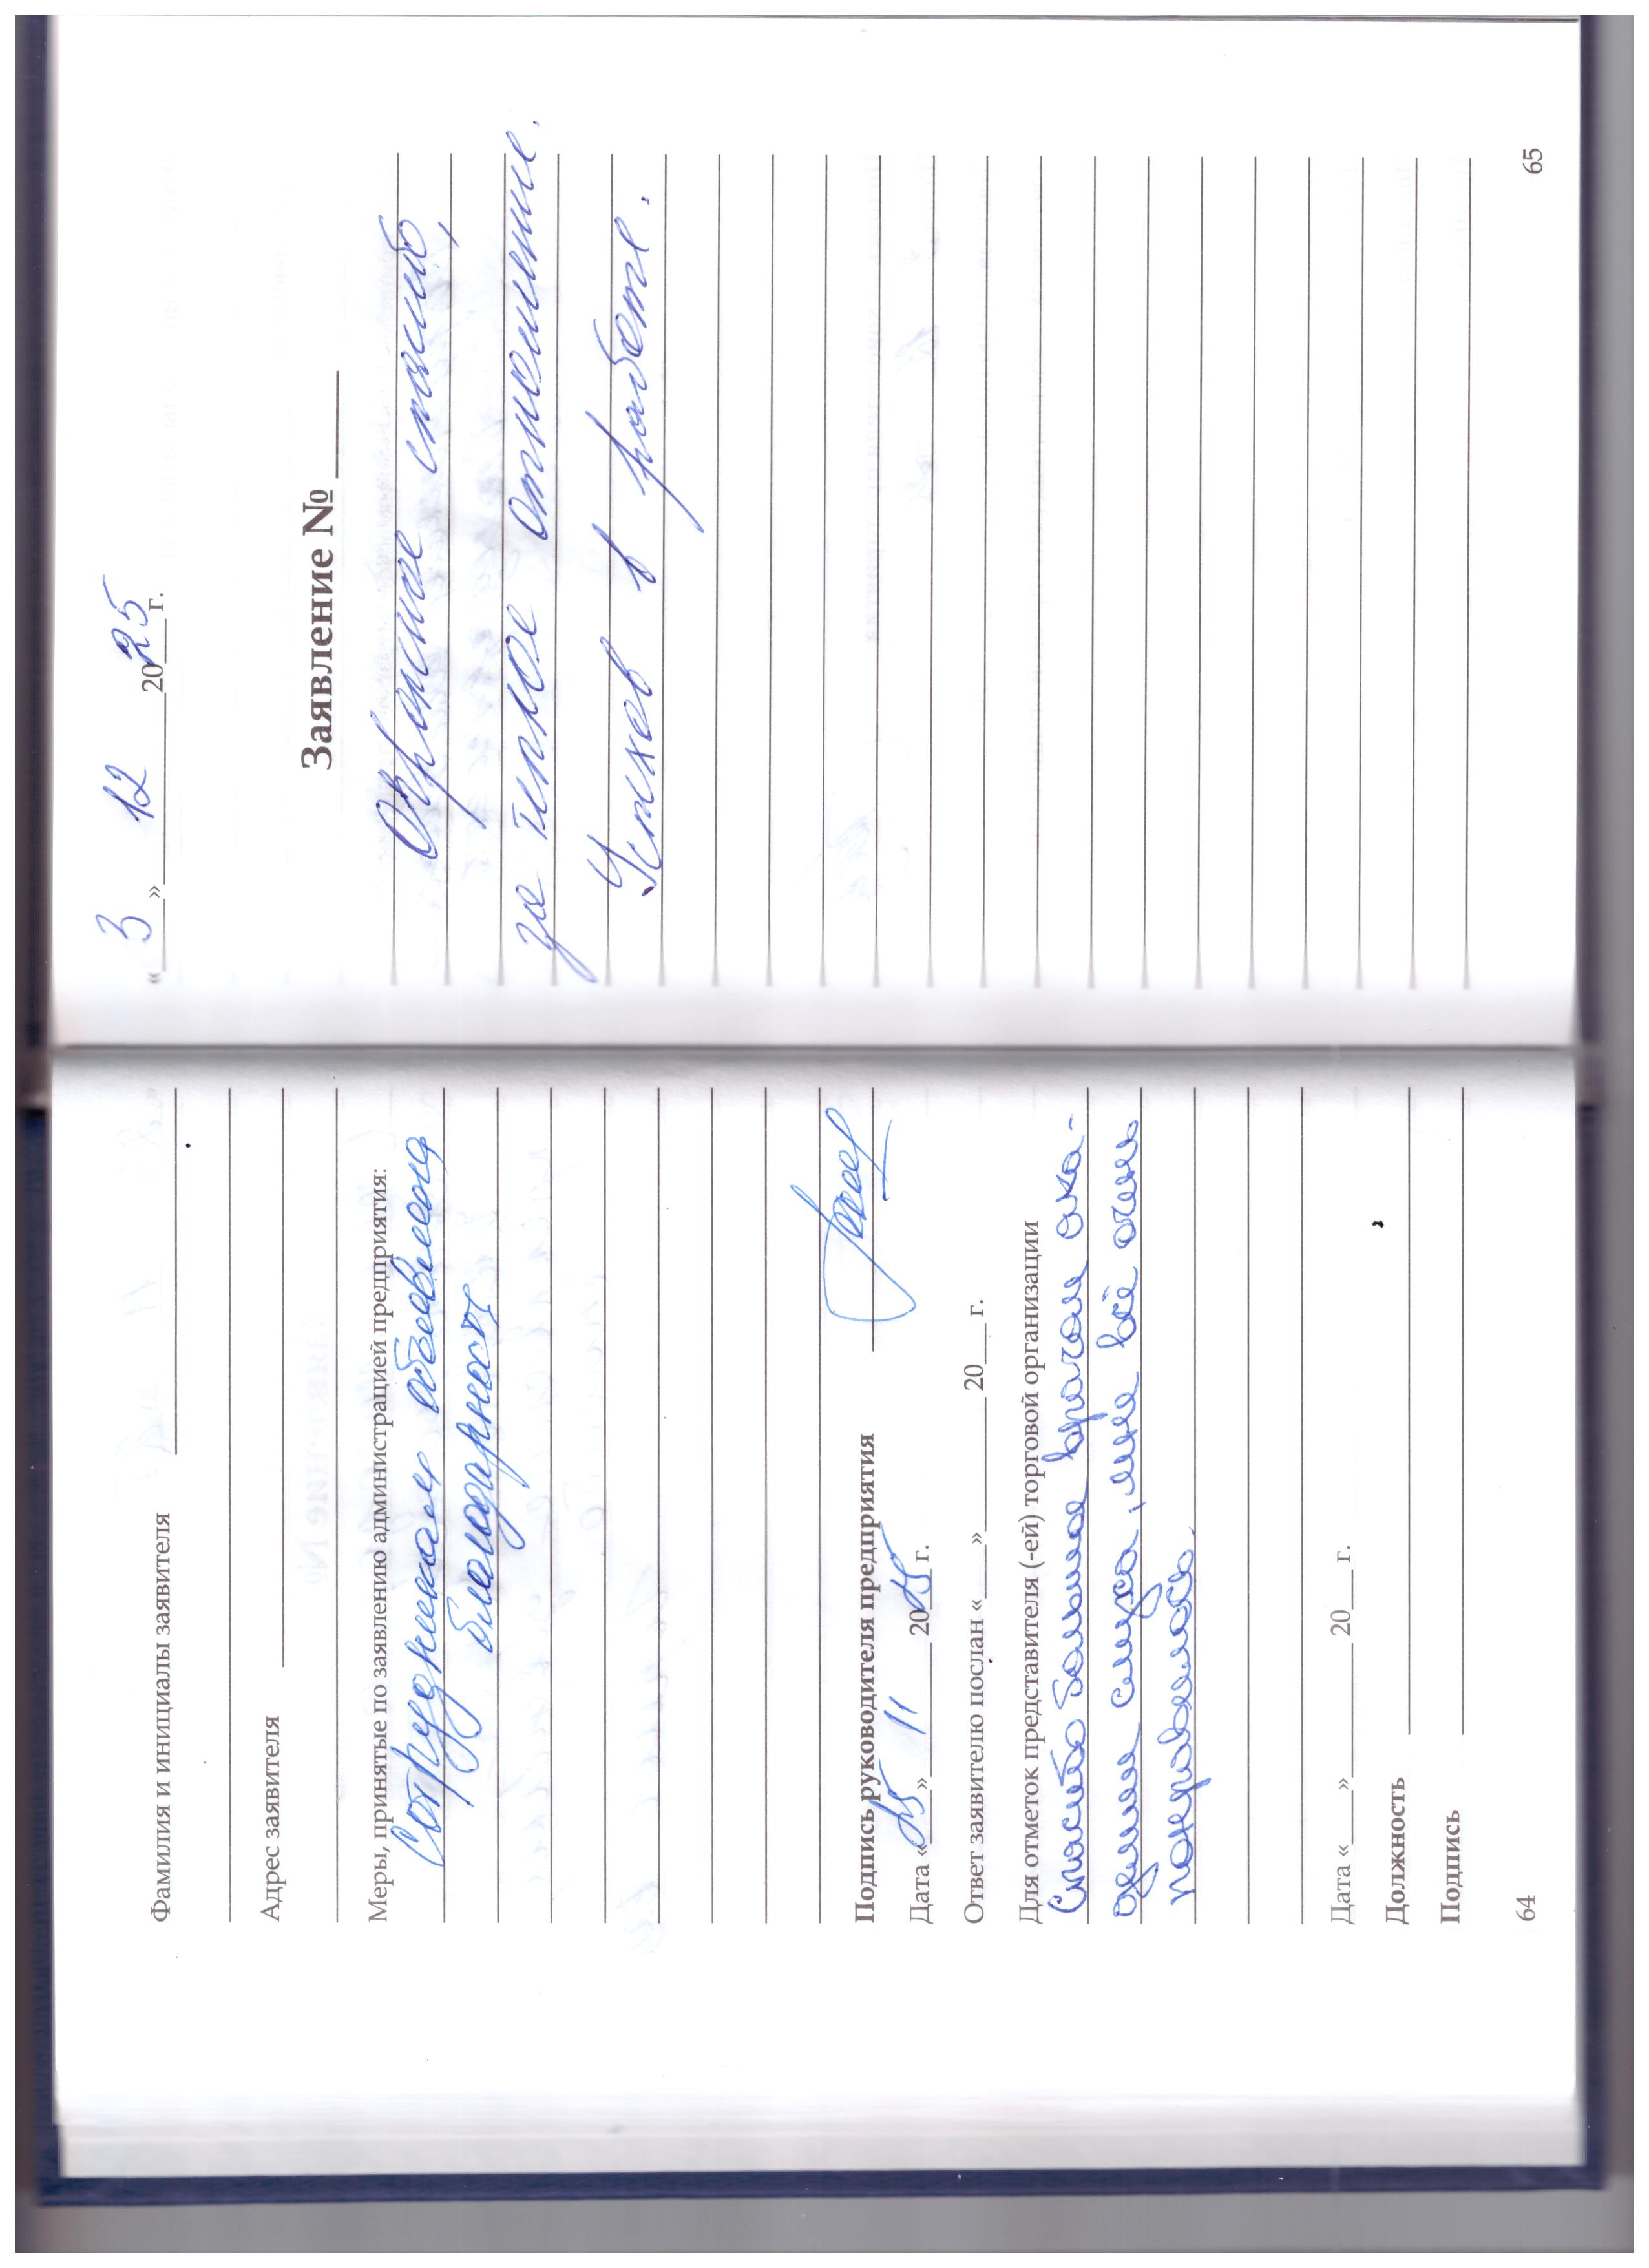 Фамилия и инициалы заявителя
Адрес заявителя
Меры, принятые по заявлению администрацией предприятия:
Сотрудникам объявлена
благодарность
Подпись руководителя предприятия
Дата «25» 11 2025 г.
Ответ заявителю послан «__» ____ 20__ г.
Для отметок представителя (-ей) торговой организации
Спасибо большое врачам ока-
слуха, мне всё очень
понравилось.
Дата «__» ____ 20__ г.
Должность
Подпись
64
«3» 12 2025 г.
Заявление № ____
Огромное спасибо,
за теплое отношение.
Успехов в работе.
65